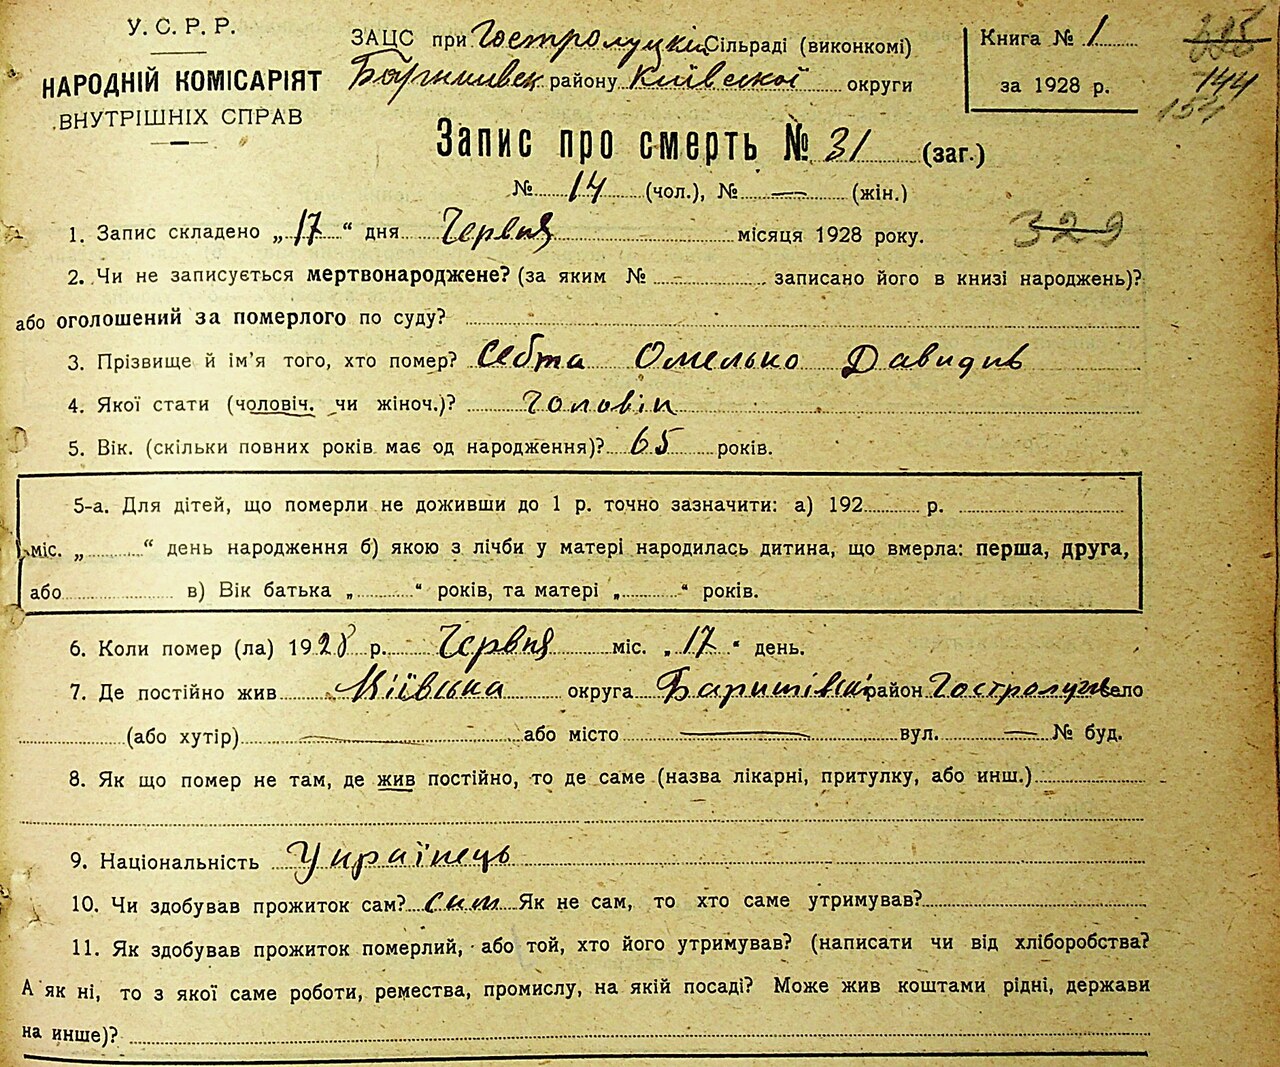 У. С. Р. Р.
НАРОДНІЙ КОМІСАРІЯТ
ВНУТРІШНІХ СПРАВ
ЗАЦС при Гостролуцкій Сільраді (виконкомі)
району Київської округи
Книга № 1
за 1928 р.
144
154
Запис про смерть № 31 (заг.)
№ 14 (чол.), № — (жін.)
1. Запис складено „17“ дня Червня місяця 1928 року.
329
2. Чи не записується мертвонароджене? (за яким № записано його в книзі народжень)?
або оголошений за померлого по суду?
3. Прізвище й ім'я того, хто помер? Себта Омелько Давидив
4. Якої стати (чоловіч. чи жіноч.)? Чоловіч
5. Вік. (скільки повних років має од народження)? 65 років.
5-а. Для дітей, що померли не доживши до 1 р. точно зазначити: а) 192 р.
міс. „ “ день народження б) якою з лічби у матері народилась дитина, що вмерла: перша, друга,
або в) Вік батька „ “ років, та матері „ “ років.
6. Коли помер (ла) 1928 р. Червня міс. „17“ день.
7. Де постійно жив Київська округа Баришівськ район Гостролуч село
(або хутір) — або місто — вул. — № буд.
8. Як що помер не там, де жив постійно, то де саме (назва лікарні, притулку, або инш.)
9. Національність Українець
10. Чи здобував прожиток сам? сам Як не сам, то хто саме утримував?
11. Як здобував прожиток померлий, або той, хто його утримував? (написати чи від хліборобства?
А як ні, то з якої саме роботи, ремества, промислу, на якій посаді? Може жив коштами рідні, держави
на инше)?